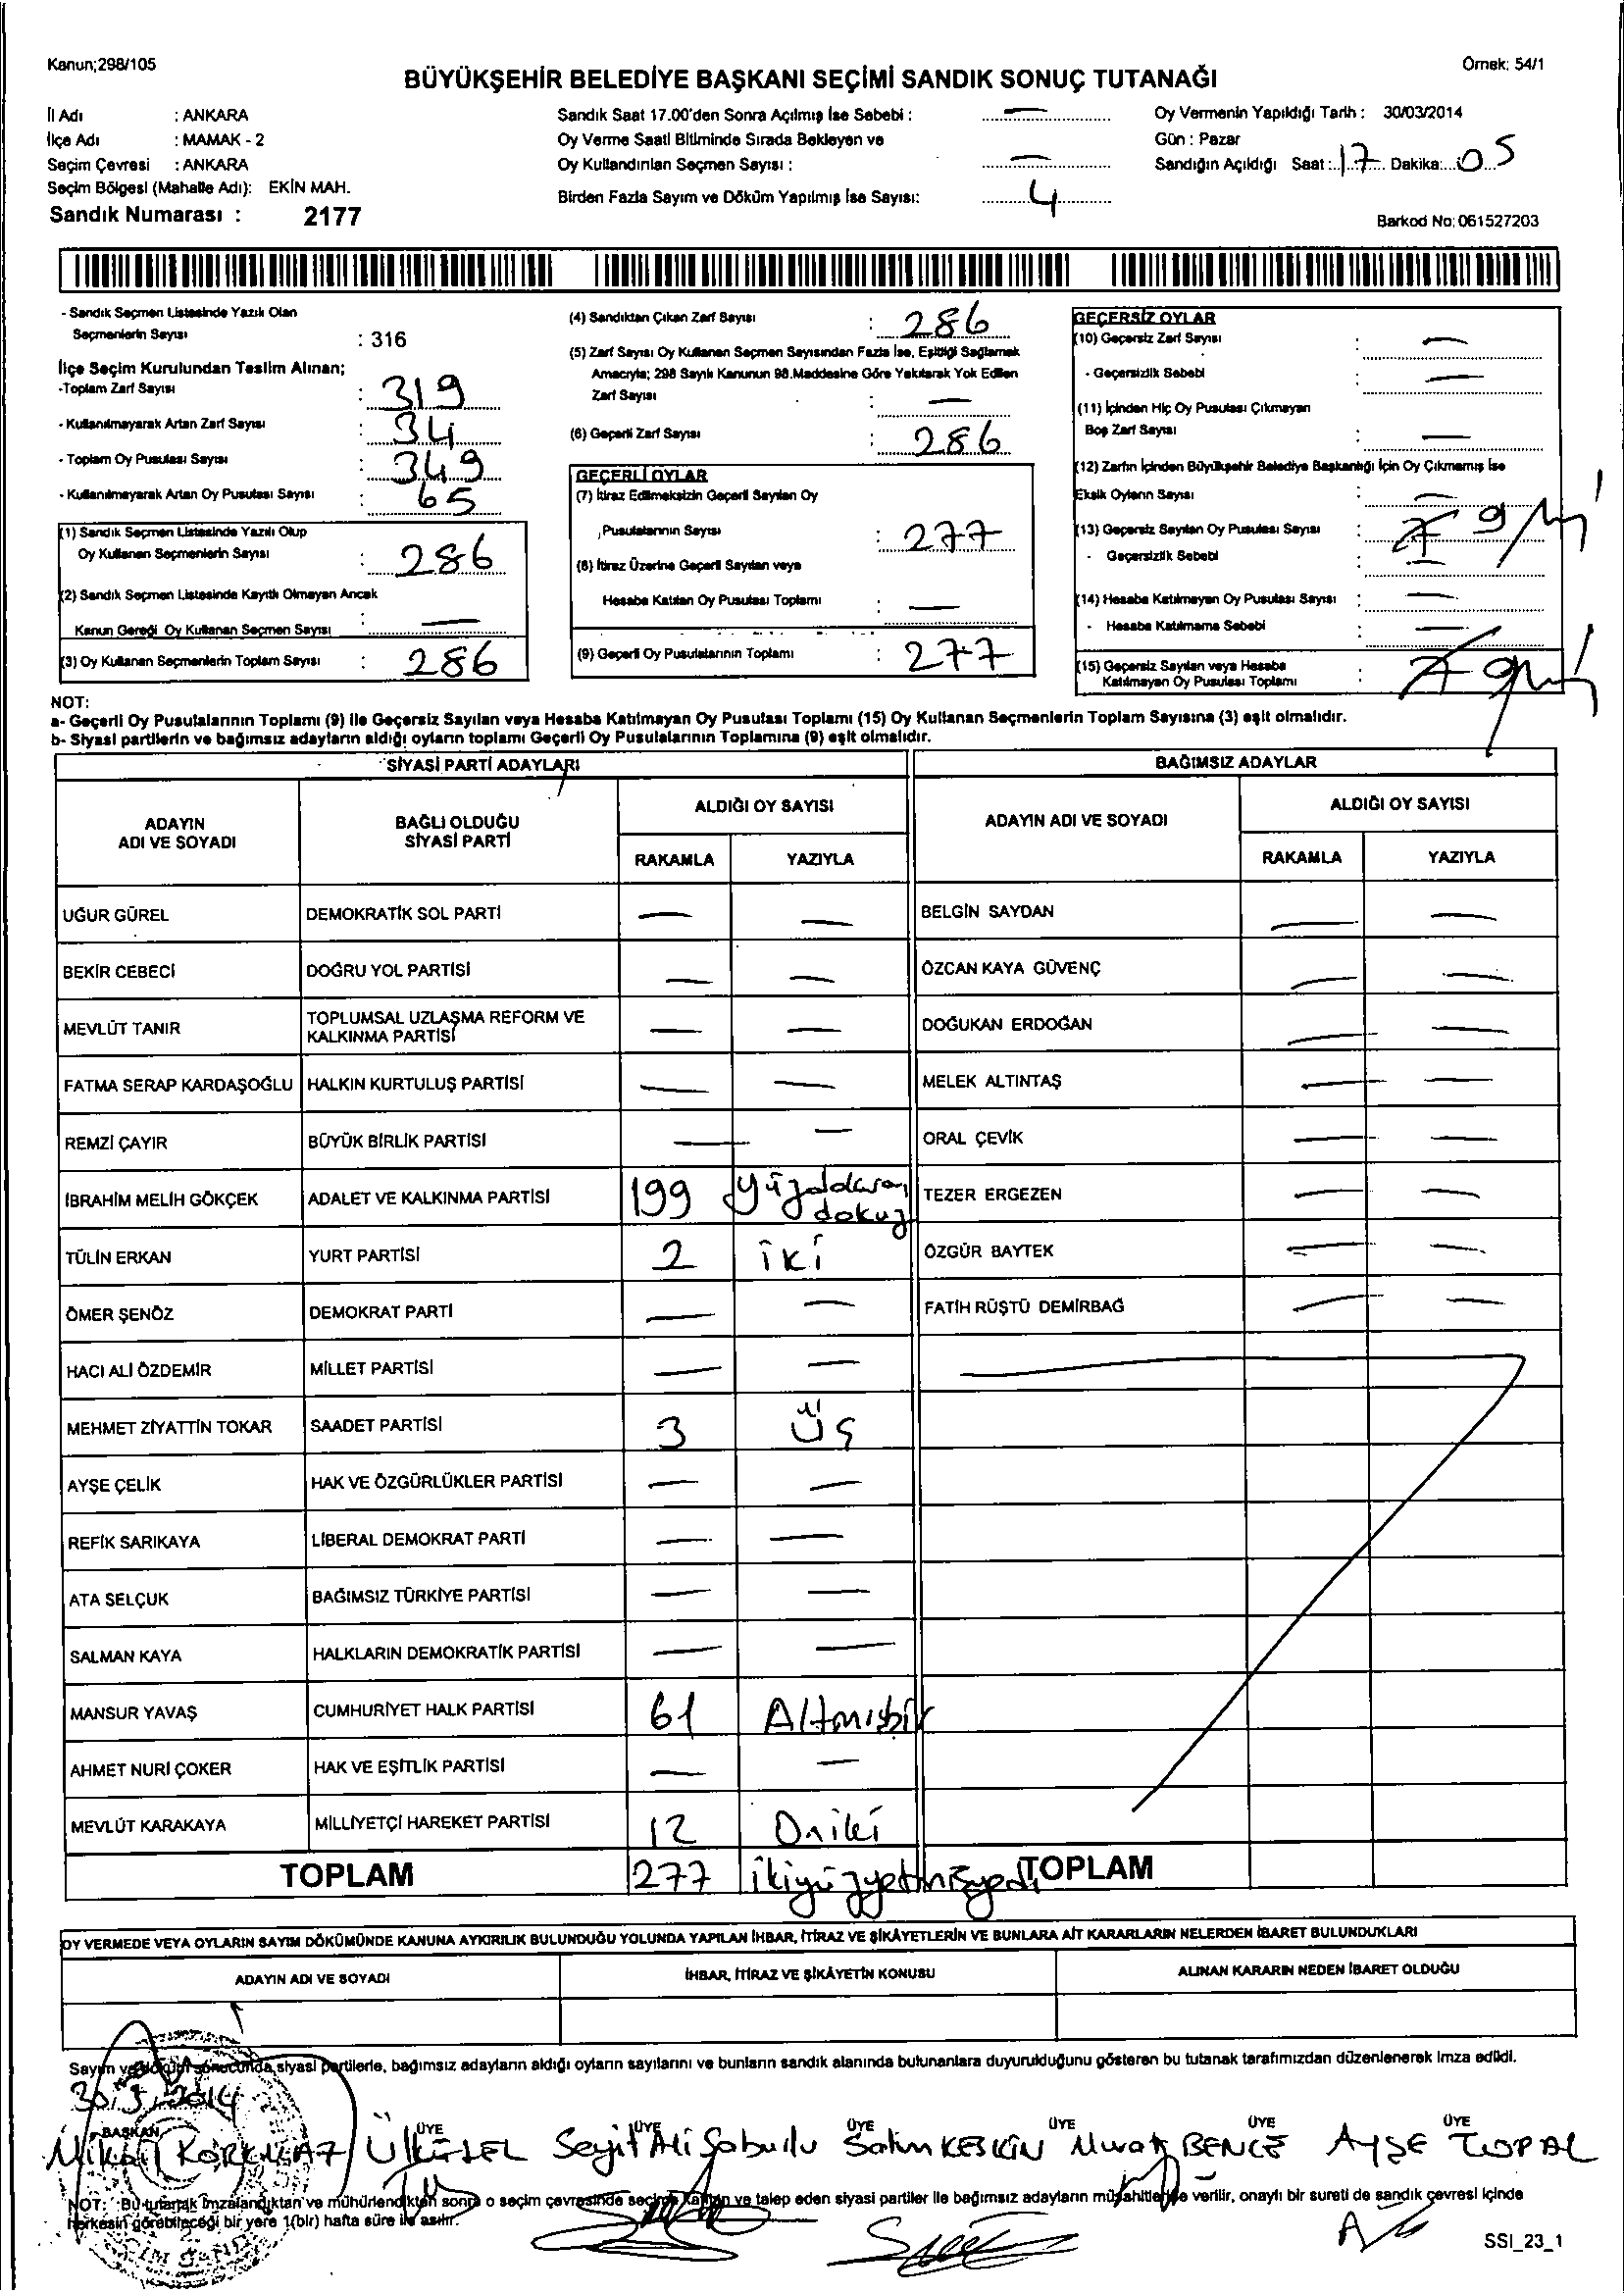 Kanun;298/105
Örnek: 54/1
BÜYÜKŞEHİR BELEDİYE BAŞKANI SEÇİMİ SANDIK SONUÇ TUTANAĞI
İl Adı : ANKARA
İlçe Adı : MAMAK - 2
Seçim Çevresi : ANKARA
Seçim Bölgesi (Mahalle Adı): EKİN MAH.
Sandık Numarası : 2177
Sandık Saat 17.00'den Sonra Açılmış İse Sebebi : —
Oy Verme Saati Bitiminde Sırada Bekleyen ve
Oy Kullandırılan Seçmen Sayısı : —
Birden Fazla Sayım ve Döküm Yapılmış İse Sayısı: 4
Oy Vermenin Yapıldığı Tarih : 30/03/2014
Gün : Pazar
Sandığın Açıldığı Saat : 17 Dakika: 05
Barkod No: 061527203
- Sandık Seçmen Listesinde Yazılı Olan
Seçmenlerin Sayısı : 316
İlçe Seçim Kurulundan Teslim Alınan;
-Toplam Zarf Sayısı : 319
- Kullanılmayarak Artan Zarf Sayısı : 34
- Toplam Oy Pusulası Sayısı : 349
- Kullanılmayarak Artan Oy Pusulası Sayısı : 65
(1) Sandık Seçmen Listesinde Yazılı Olup
Oy Kullanan Seçmenlerin Sayısı : 286
(2) Sandık Seçmen Listesinde Kayıtlı Olmayan Ancak
Kanun Gereği Oy Kullanan Seçmen Sayısı : —
(3) Oy Kullanan Seçmenlerin Toplam Sayısı : 286
(4) Sandıktan Çıkan Zarf Sayısı : 286
(5) Zarf Sayısı Oy Kullanan Seçmen Sayısından Fazla İse, Eşitliği Sağlamak
Amacıyla; 298 Sayılı Kanunun 98.Maddesine Göre Yakılarak Yok Edilen
Zarf Sayısı : —
(6) Geçerli Zarf Sayısı : 286
GEÇERLİ OYLAR
(7) İtiraz Edilmeksizin Geçerli Sayılan Oy
Pusulalarının Sayısı : 277
(8) İtiraz Üzerine Geçerli Sayılan veya
Hesaba Katılan Oy Pusulası Toplamı : —
(9) Geçerli Oy Pusulalarının Toplamı : 277
GEÇERSİZ OYLAR
(10) Geçersiz Zarf Sayısı : —
- Geçersizlik Sebebi : —
(11) İçinden Hiç Oy Pusulası Çıkmayan
Boş Zarf Sayısı : —
(12) Zarfın İçinden Büyükşehir Belediye Başkanlığı İçin Oy Çıkmamış İse
Eksik Oyların Sayısı : —
(13) Geçersiz Sayılan Oy Pusulası Sayısı : 7 9
- Geçersizlik Sebebi : —
(14) Hesaba Katılmayan Oy Pusulası Sayısı : —
- Hesaba Katılmama Sebebi : —
(15) Geçersiz Sayılan veya Hesaba
Katılmayan Oy Pusulası Toplamı : 7 9
NOT:
a- Geçerli Oy Pusulalarının Toplamı (9) ile Geçersiz Sayılan veya Hesaba Katılmayan Oy Pusulası Toplamı (15) Oy Kullanan Seçmenlerin Toplam Sayısına (3) eşit olmalıdır.
b- Siyasi partilerin ve bağımsız adayların aldığı oyların toplamı Geçerli Oy Pusulalarının Toplamına (9) eşit olmalıdır.
SİYASİ PARTİ ADAYLARI
ADAYIN ADI VE SOYADI
BAĞLI OLDUĞU SİYASİ PARTİ
ALDIĞI OY SAYISI
RAKAMLA YAZIYLA
UĞUR GÜREL DEMOKRATİK SOL PARTİ — —
BEKİR CEBECİ DOĞRU YOL PARTİSİ — —
MEVLÜT TANIR TOPLUMSAL UZLAŞMA REFORM VE KALKINMA PARTİSİ — —
FATMA SERAP KARDAŞOĞLU HALKIN KURTULUŞ PARTİSİ — —
REMZİ ÇAYIR BÜYÜK BİRLİK PARTİSİ — —
İBRAHİM MELİH GÖKÇEK ADALET VE KALKINMA PARTİSİ 199 yüzdoksan dokuz
TÜLİN ERKAN YURT PARTİSİ 2 iki
ÖMER ŞENÖZ DEMOKRAT PARTİ — —
HACI ALİ ÖZDEMİR MİLLET PARTİSİ — —
MEHMET ZİYATTİN TOKAR SAADET PARTİSİ 3 Üç
AYŞE ÇELİK HAK VE ÖZGÜRLÜKLER PARTİSİ — —
REFİK SARIKAYA LİBERAL DEMOKRAT PARTİ — —
ATA SELÇUK BAĞIMSIZ TÜRKİYE PARTİSİ — —
SALMAN KAYA HALKLARIN DEMOKRATİK PARTİSİ — —
MANSUR YAVAŞ CUMHURİYET HALK PARTİSİ 61 Altmışbir
AHMET NURİ ÇOKER HAK VE EŞİTLİK PARTİSİ — —
MEVLÜT KARAKAYA MİLLİYETÇİ HAREKET PARTİSİ 12 Oniki
TOPLAM 277 ikiyüzyetmişyedi
BAĞIMSIZ ADAYLAR
ADAYIN ADI VE SOYADI
ALDIĞI OY SAYISI
RAKAMLA YAZIYLA
BELGİN SAYDAN — —
ÖZCAN KAYA GÜVENÇ — —
DOĞUKAN ERDOĞAN — —
MELEK ALTINTAŞ — —
ORAL ÇEVİK — —
TEZER ERGEZEN — —
ÖZGÜR BAYTEK — —
FATİH RÜŞTÜ DEMİRBAĞ — —
TOPLAM
OY VERMEDE VEYA OYLARIN SAYIM DÖKÜMÜNDE KANUNA AYKIRILIK BULUNDUĞU YOLUNDA YAPILAN İHBAR, İTİRAZ VE ŞİKÂYETLERİN VE BUNLARA AİT KARARLARIN NELERDEN İBARET BULUNDUKLARI
ADAYIN ADI VE SOYADI
İHBAR, İTİRAZ VE ŞİKÂYETİN KONUSU
ALINAN KARARIN NEDEN İBARET OLDUĞU
Sayım ve döküm sonucunda siyasi partilerle, bağımsız adayların aldığı oyların sayılarını ve bunların sandık alanında bulunanlara duyurulduğunu gösteren bu tutanak tarafımızdan düzenlenerek imza edildi.
30.3.2014
BAŞKAN ÜYE ÜYE ÜYE ÜYE ÜYE ÜYE
KORKMAZ Seyit Ali Satın KESKİN Murat BENCE AYŞE TOPAL
NOT: Bu tutanak imzalandıktan ve mühürlendikten sonra o seçim çevresinde seçime katılan ve talep eden siyasi partiler ile bağımsız adayların müşahitlerine verilir, onaylı bir sureti de sandık çevresi içinde
herkesin görebileceği bir yere 1(bir) hafta süre ile asılır.
SSI_23_1